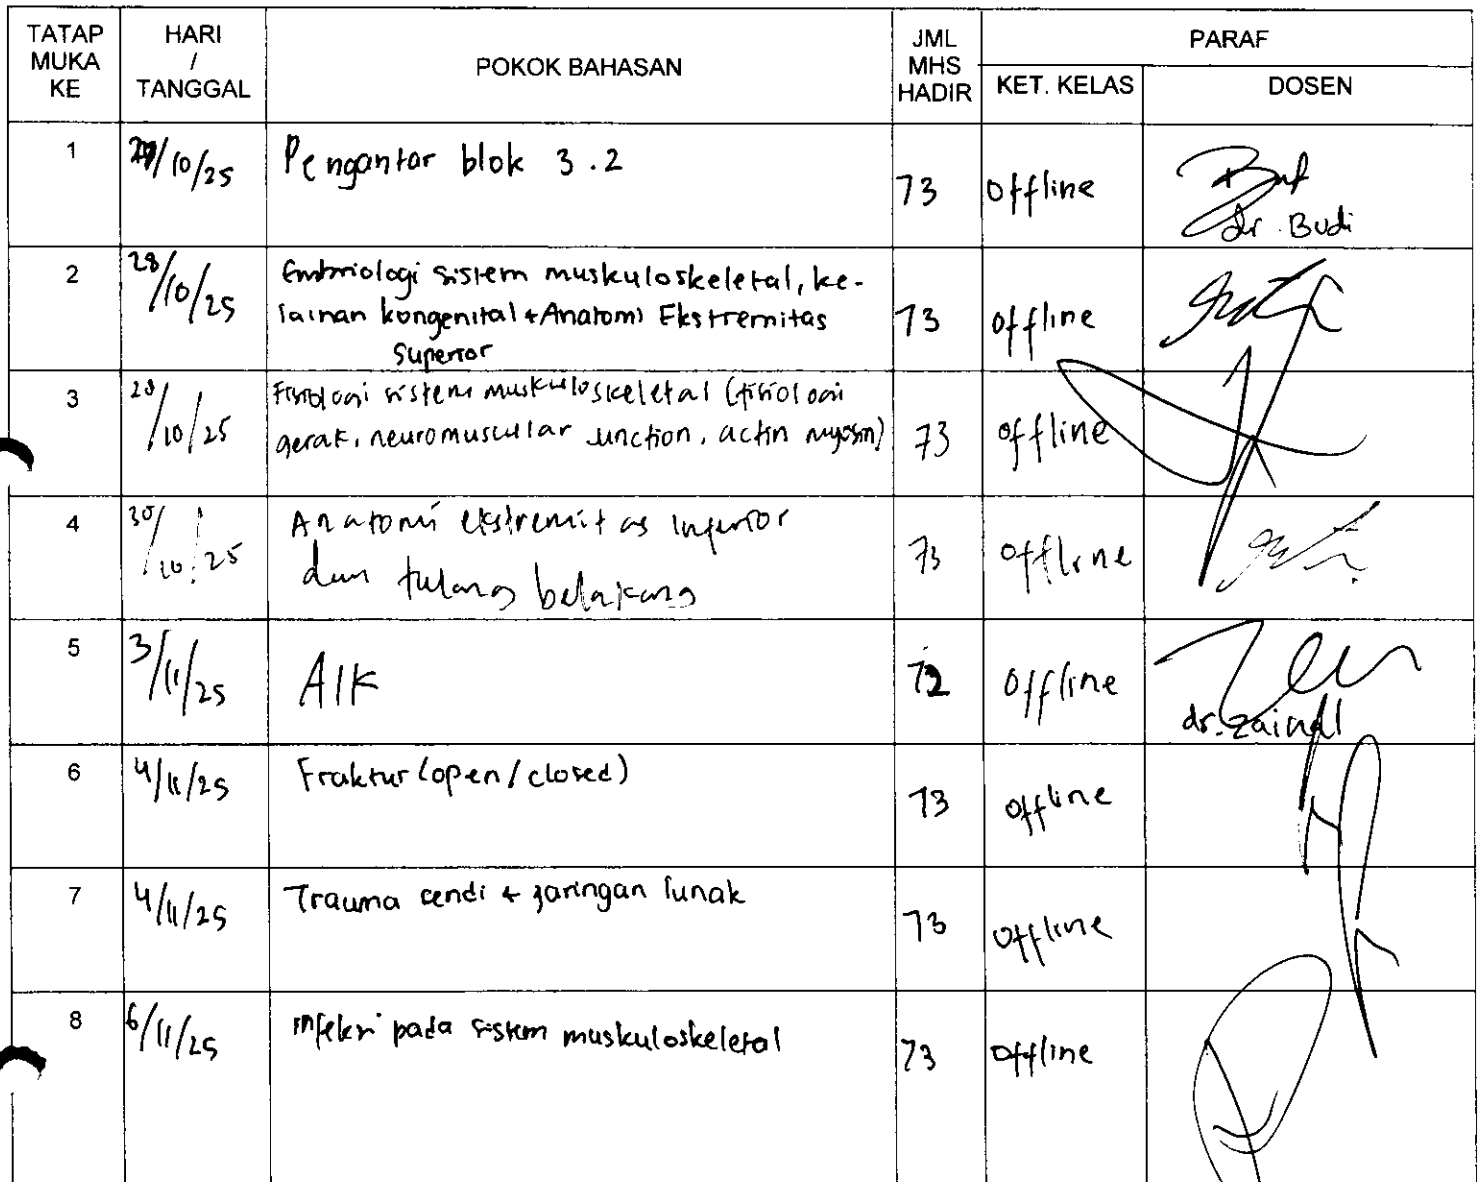 TATAP MUKA KE
HARI / TANGGAL
POKOK BAHASAN
JML MHS HADIR
PARAF
KET. KELAS
DOSEN
1 /10/25 Pengantar blok 3.2 73 Offline
dr. Budi
2 28/10/25 Embriologi sistem muskuloskeletal, ke-
lainan kongenital + Anatomi Ekstremitas
Superior
73 offline
3 28/10/25 Fisiologi sistem muskuloskeletal (fisiologi
gerak, neuromuscular junction, actin myosin)
73 offline
4 30/10/25 Anatomi ekstremitas inferior
dan tulang belakang
73 Offline
5 3/11/25 AIK 72 Offline
dr. Zainal
6 4/11/25 Fraktur (open/closed) 73 offline
7 4/11/25 Trauma sendi + jaringan lunak 73 offline
8 6/11/25 infeksi pada sistem muskuloskeletal 73 offline